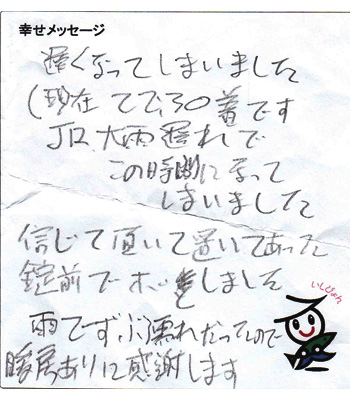 幸せメッセージ
遅くなってしまいました
(現在 22:30着です
JR、大雨遅れで
この時間になって
しまいました
信じて頂いて置いてあった
錠前でホッとしました
雨でずぶ濡れだったので
暖房ありに感謝します
いしぴょん